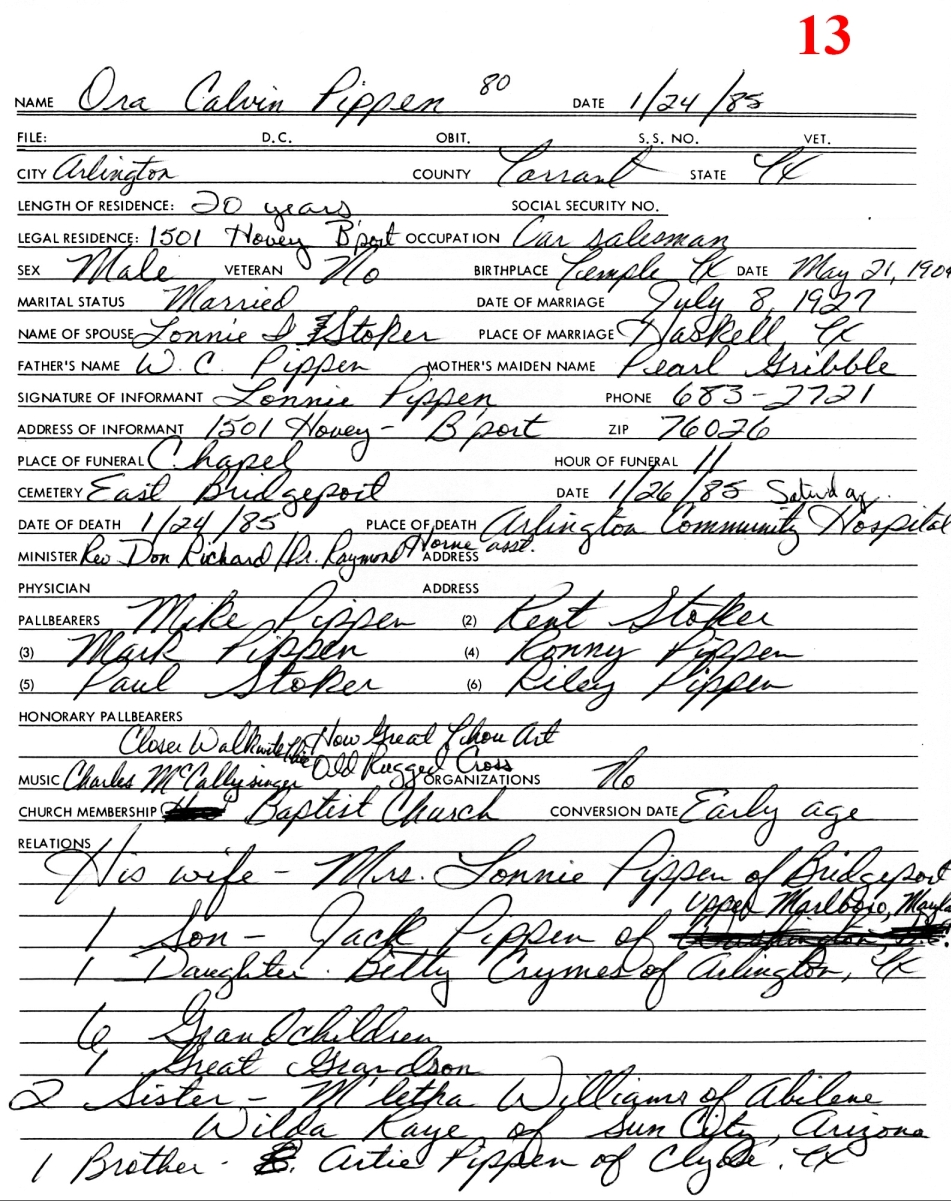 13
NAME Ora Calvin Pippen 80 DATE 1/24/85
FILE: D.C. OBIT. S.S. NO. VET.
CITY Arlington COUNTY Tarrant STATE TX
LENGTH OF RESIDENCE: 20 years SOCIAL SECURITY NO.
LEGAL RESIDENCE: 1501 Hovey B'port OCCUPATION Car salesman
SEX Male VETERAN No BIRTHPLACE Temple TX DATE May 21, 1904
MARITAL STATUS Married DATE OF MARRIAGE July 8, 1927
NAME OF SPOUSE Lonnie I Stoker PLACE OF MARRIAGE Haskell, TX
FATHER'S NAME W. C. Pippen MOTHER'S MAIDEN NAME Pearl Gribble
SIGNATURE OF INFORMANT Lonnie Pippen PHONE 683-2721
ADDRESS OF INFORMANT 1501 Hovey - B'port ZIP 76026
PLACE OF FUNERAL Chapel HOUR OF FUNERAL 11
CEMETERY East Bridgeport DATE 1/26/85 Saturday
DATE OF DEATH 1/24/85 PLACE OF DEATH Arlington Community Hospital
MINISTER Rev Don Richard /Dr. Raymond Horne asst. ADDRESS
PHYSICIAN ADDRESS
PALLBEARERS Mike Pippen (2) Kent Stoker
(3) Mark Pippen (4) Ronny Pippen
(5) Paul Stoker (6) Riley Pippen
HONORARY PALLBEARERS
Closer Walk with Thee How Great Thou Art
Old Rugged Cross
MUSIC Charles McCally singer ORGANIZATIONS No
CHURCH MEMBERSHIP Baptist Church CONVERSION DATE Early age
RELATIONS
His wife - Mrs. Lonnie Pippen of Bridgeport
Upper Marlboro, Maryla
1 Son - Jack Pippen of
1 Daughter - Betty Crymes of Arlington, TX
6 Grandchildren
1 Great Grandson
2 Sister - M'letha Williams of Abilene
Wilda Kaye of Sun City, Arizona
1 Brother - Artie Pippen of Clyde, TX